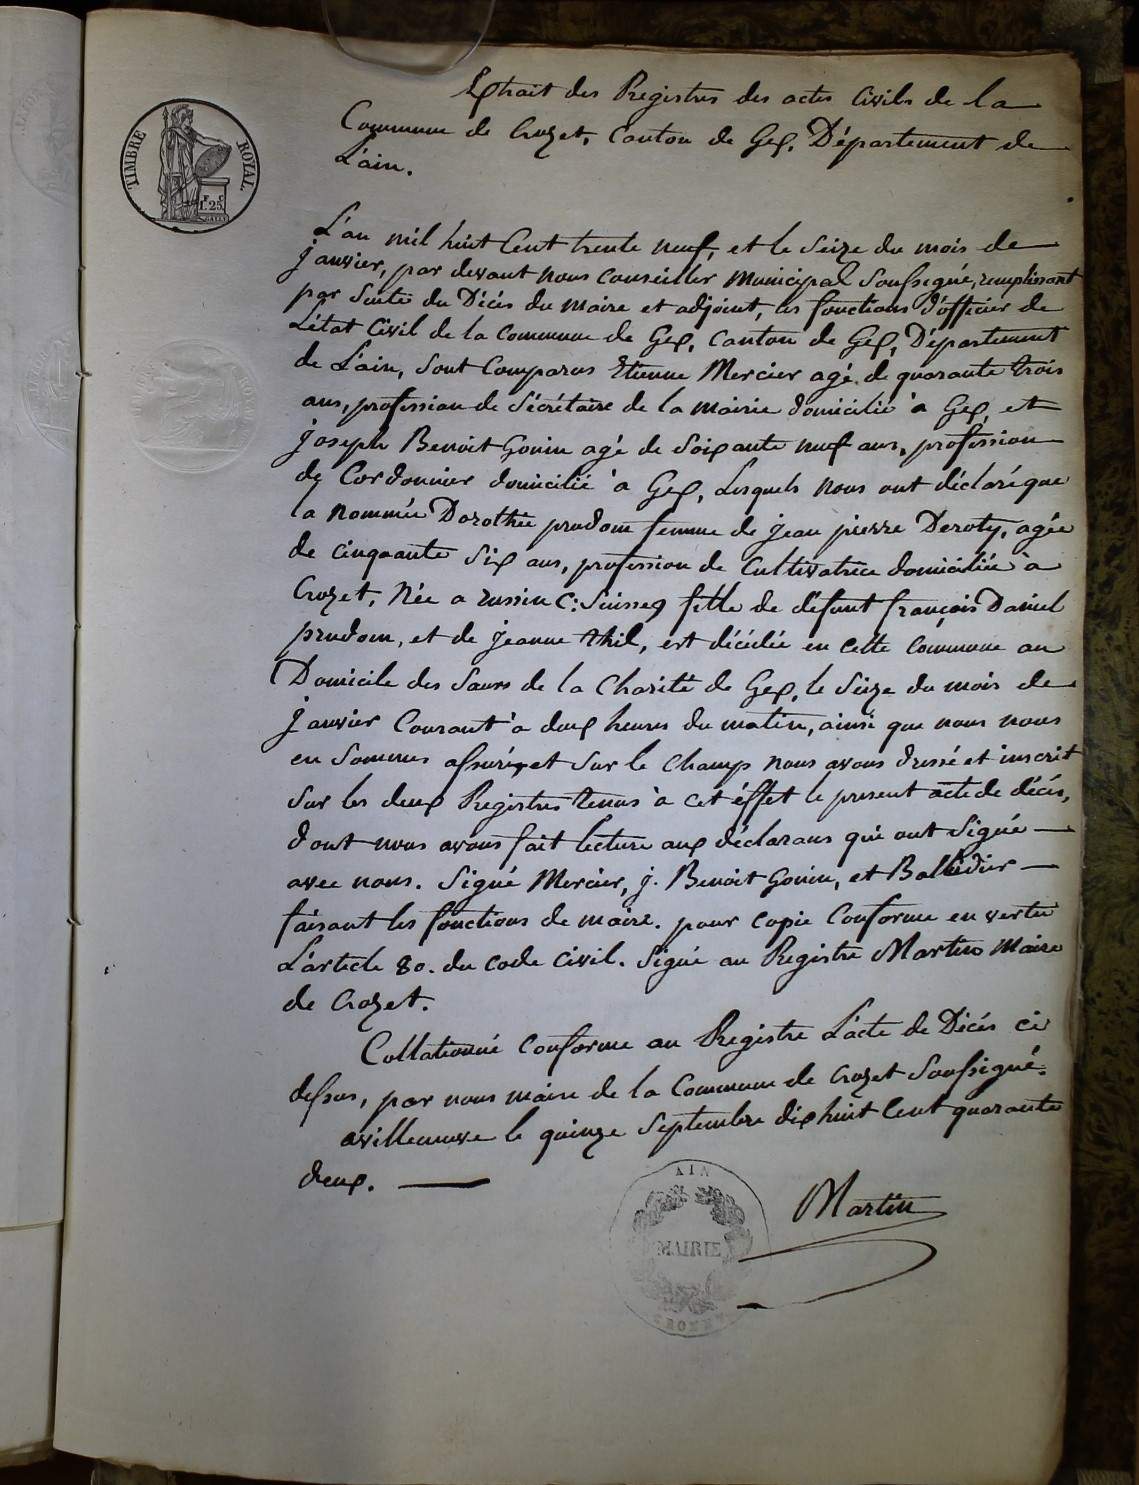 TIMBRE ROYAL
F. C.
1. 25.
Extrait des Registres des actes Civils de la
Commune de Crozet, Canton de Gex, Département de
L'ain.
L'an mil huit Cent trente neuf, et le Seize du mois de
janvier, par devant nous Conseiller Municipal Soussigné, remplissant
par Suite du Décès du maire et adjoint, les fonctions d'officier de
L'état Civil de la Commune de Gex, Canton de Gex, Département
de L'ain, Sont Comparus Etienne Mercier agé de quarante trois
ans, profession de Sécrétaire de la mairie domicilié à Gex, et
joseph Benoit Gonin agé de Soixante neuf ans, profession
de Cordonnier domicilié à Gex, Lesquels nous ont déclaré que
la nommée Dorothée prudom femme de jean pierre Deroty, agée
de cinquante Six ans, profession de Cultivatrice domiciliée à
Crozet, Née a russin C: Suisse, fille de défunt françois Daniel
prudom, et de jeanne thil, est décédée en cette Commune au
Domicile des Sœurs de la Charité de Gex, le Seize du mois de
janvier Courant à deux heures du matin, ainsi que nous nous
en Sommes assurés, et Sur le Champ nous avons dressé et inscrit
Sur les deux Registres tenus à cet éffet le present acte de décés,
dont nous avons fait lecture aux déclarans qui ont Signé
avec nous. Signé Mercier, j. Benoit Gonin, et Balleidier
faisant les fonctions de maire. pour Copie Conforme en vertu
L'article 80. du code Civil. Signé au Registre Martin Maire
de Crozet.
Collationné Conforme au Registre L'acte de Décés ci
dessus, par nous maire de la Commune de Crozet Soussigné.
avilleneuve le quinze Septembre dix huit Cent quarante
deux.
Martin
AIN
MAIRIE
CROZET